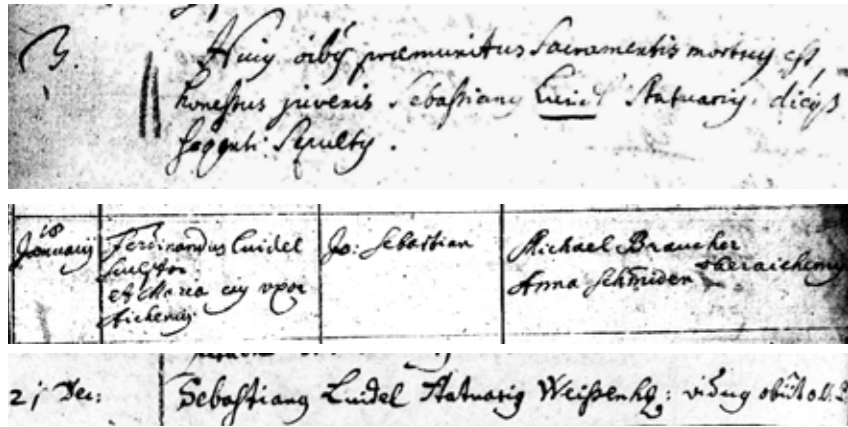 3.
Huius oibus praemunitus Sacramentis mortuus est
honestus juvenis Sebastianus Luidl Statuarius
Sepultus.
18
January
Ferdinandus Luidel
Sculptor
et Maria eius uxor
Jo: Sebastian
Michael Braucher
Anna Schmiden
21 Dec:
Sebastianus Luidel Statuarius Weissenhs: viduus obijt